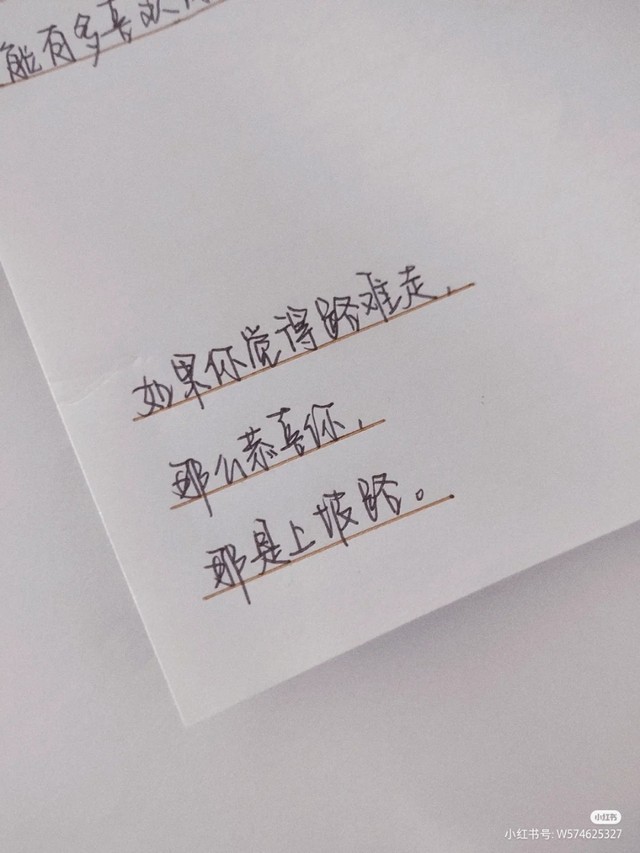 能有多喜欢
如果你觉得路难走，
那么恭喜你，
那是上坡路。
小红书
小红书号: W574625327